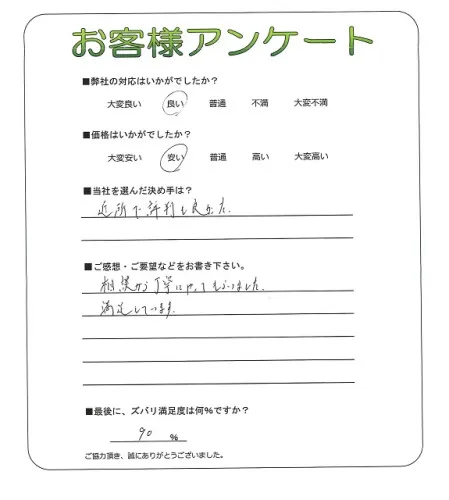 お客様アンケート
■弊社の対応はいかがでしたか？
大変良い 良い 普通 不満 大変不満
■価格はいかがでしたか？
大変安い 安い 普通 高い 大変高い
■当社を選んだ決め手は？
近所で評判も良かった.
■ご感想・ご要望などをお書き下さい。
相談から丁寧にやってもらいました.
満足しています.
■最後に、ズバリ満足度は何％ですか？
90 ％
ご協力頂き、誠にありがとうございました。